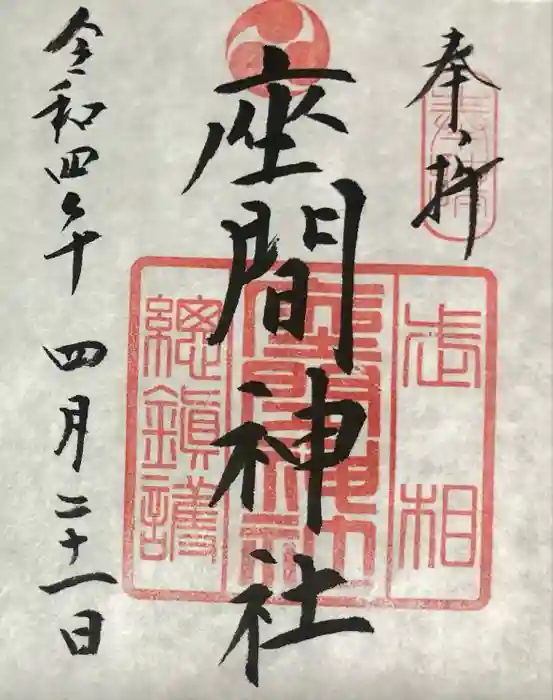 奉拝
武相
座間神社
座間神社
總鎮護
令和四年 四月二十一日